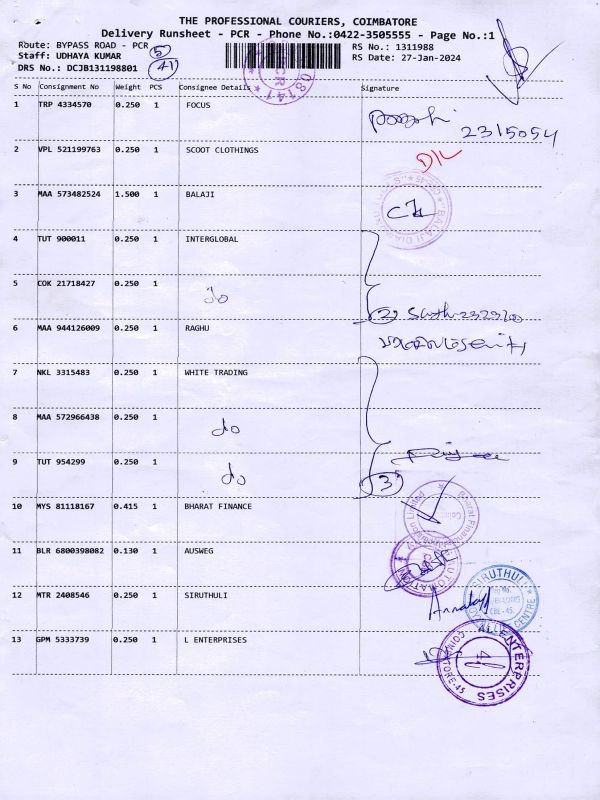 THE PROFESSIONAL COURIERS, COIMBATORE
Delivery Runsheet - PCR - Phone No.:0422-3505555 - Page No.:1
Route: BYPASS ROAD - PCR 5 RS No.: 1311988
Staff: UDHAYA KUMAR RS Date: 27-Jan-2024
DRS No.: DCJB131198801 41
S No Consignment No Weight PCS Consignee Details Signature
1 TRP 4334570 0.250 1 FOCUS
2315054
2 VPL 521199763 0.250 1 SCOOT CLOTHINGS D/L
3 MAA 573482524 1.500 1 BALAJI
4 TUT 900011 0.250 1 INTERGLOBAL
5 COK 21718427 0.250 1
do
2
6 MAA 944126009 0.250 1 RAGHU
7 NKL 3315483 0.250 1 WHITE TRADING
8 MAA 572966438 0.250 1
do
9 TUT 954299 0.250 1 do
3
10 MYS 81118167 0.415 1 BHARAT FINANCE
11 BLR 6800398082 0.130 1 AUSWEG
12 MTR 2408546 0.250 1 SIRUTHULI
SIRUTHULI
CBE-45.
CENTRE
13 GPM 5333739 0.250 1 L ENTERPRISES
ENTERPRISES